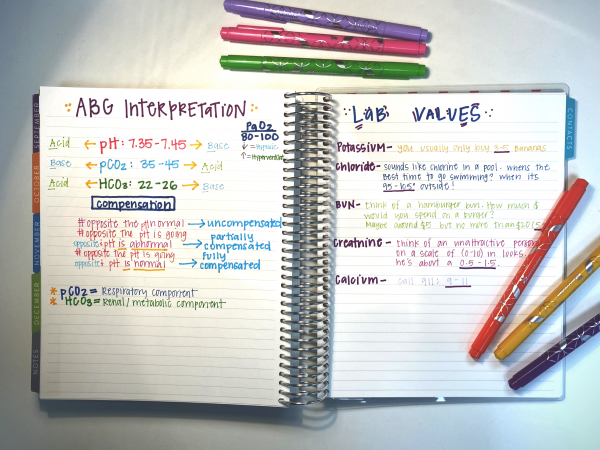 ABG Interpretation
PaO2
80-100
↓ = Hypoxic
↑ = Hyperventilation
Acid ← pH: 7.35-7.45 → Base
Base ← pCO2: 35-45 → Acid
Acid ← HCO3: 22-26 → Base
compensation
# opposite the ph normal → uncompensated
# opposite the ph is going
opposite & ph is abnormal → partially compensated
# opposite the ph is going
opposite & ph is normal → fully compensated
* pCO2 = Respiratory component
* HCO3 = Renal/metabolic component
Lab Values
Potassium - you usually only buy 3-5 bananas
Chloride - sounds like chlorine in a pool. whens the
best time to go swimming? when its
95-105° outside!
BUN - think of a hamburger bun. How much $
would you spend on a burger?
Maybe around $5 but no more than $20!
Creatnine - think of an unattractive person
on a scale of (0-10) in looks.
he's about a 0.5-1.5.
Calcium - call 911: 9-11
SEPTEMBER
OCTOBER
NOVEMBER
DECEMBER
NOTES
CONTACTS